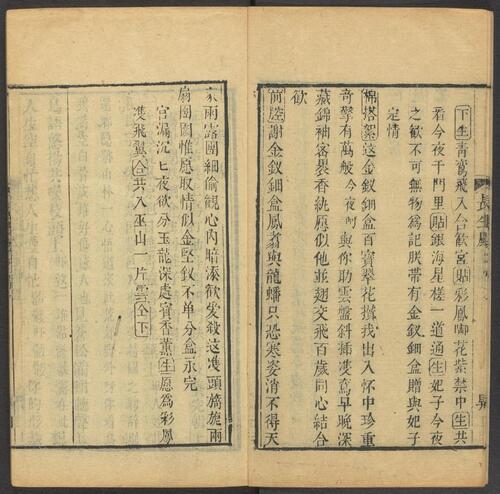 下生青鸞飛入合歡宮貼彩鳳啣花紫禁中生共
看今夜千門里貼銀海星槎一道通生妃子今夜
之歡不可無物爲記朕帶有金釵鈿盒贈與妃子
定情
棉搭絮這金釵鈿盒百寶翠花攅我出入懷中珍重
奇擎有萬般今夜呵與你助雲盤斜插雙鸞早晚深
藏錦袖密裹香紈願似他並翅交飛百歲同心結合
歡
前腔謝金釵鈿盒鳳翥與龍蟠只恐寒姿消不得天
家雨露團細偷觀心內暗添歡愛殺這雙頭旖旎兩
扇團圞惟愿取情似金堅釵不單分盒永完
宮漏沉沉夜欲分玉龍深處寶香薰生愿爲彩鳳
雙飛翼合共入巫山一片雲仝下